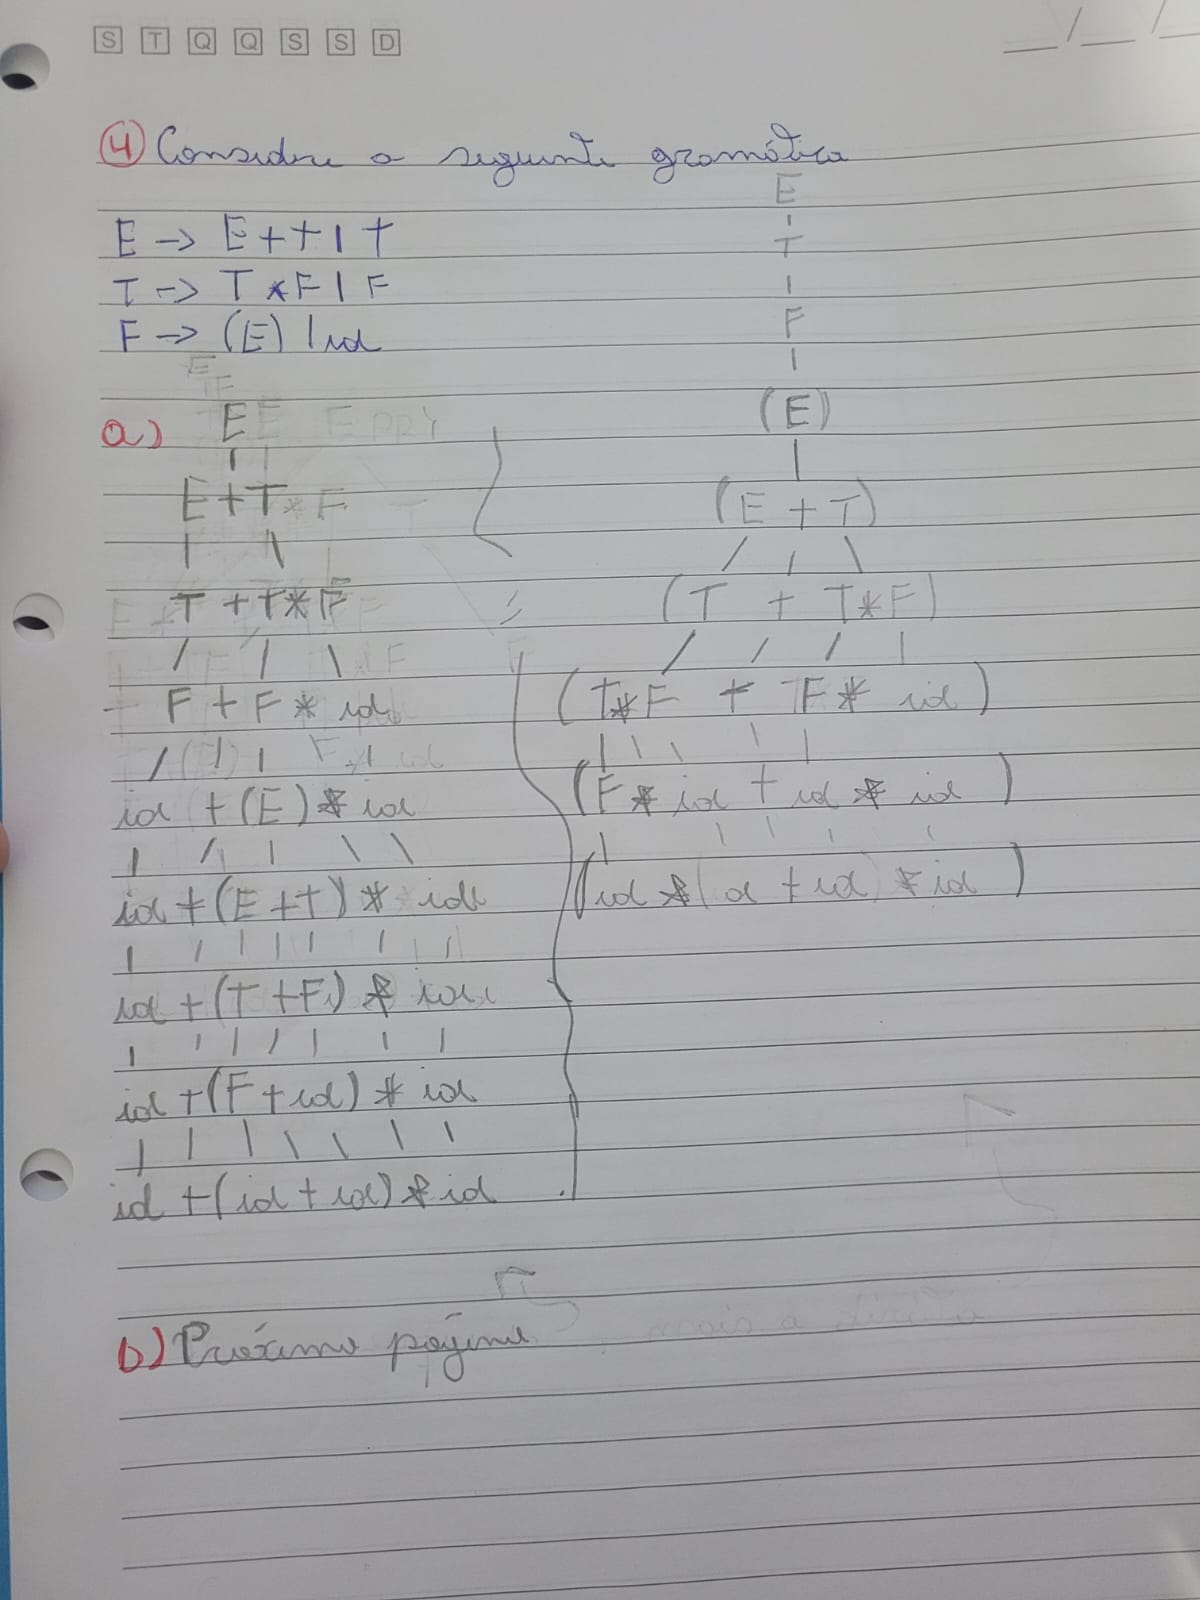 S T Q Q S S D
__/__/__
4 Considere a seguinte gramática
E -> E + T | T
T -> T * F | F
F -> (E) | id
a)
E
E + T
T + T * F
F + F * id
id + (E) * id
id + (E + T) * id
id + (T + F) * id
id + (F + id) * id
id + (id + id) * id
E
T
F
(E)
(E + T)
(T + T * F)
(T * F + F * id)
(F * id + id * id)
(id * (id + id) * id)
b) Próxima página